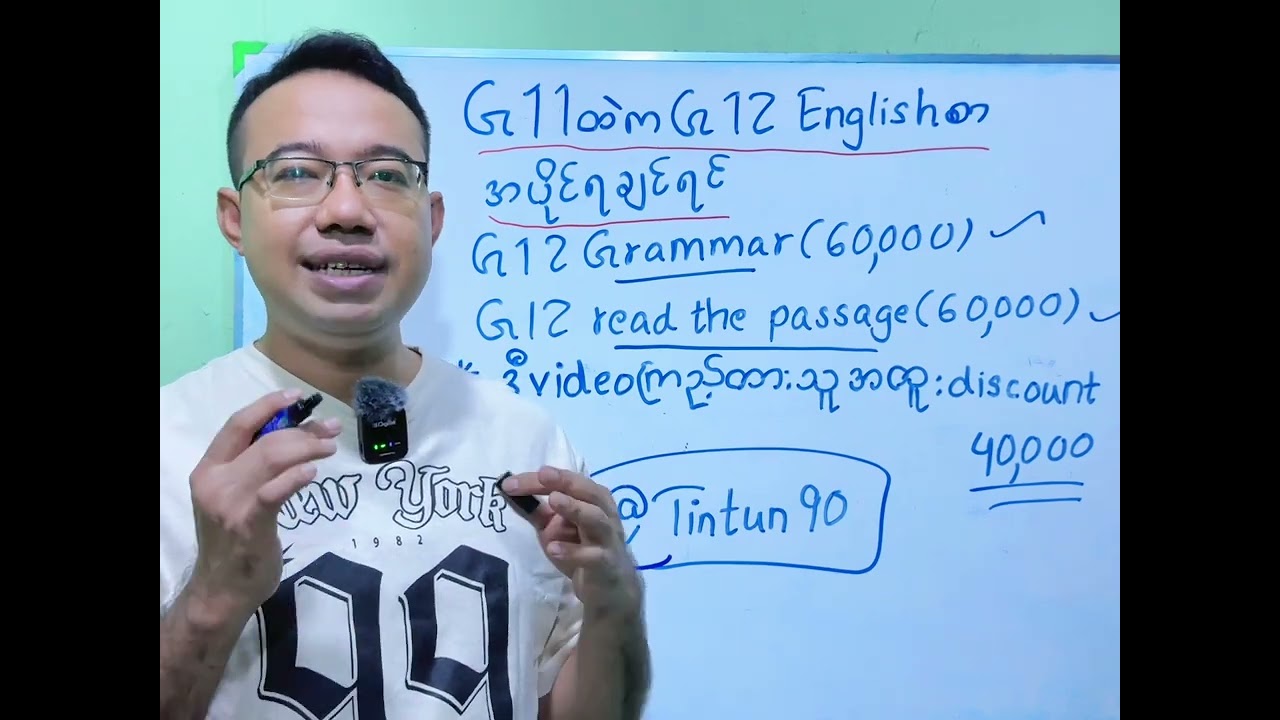 G11ထဲက G12 Englishစာ
အပိုင်ရချင်ရင်
G12 Grammar (60,000)
G12 read the passage (60,000)
* ဒီ video ကြည့်ထားသူ အထူး discount
40,000
@Tintun90
New York
1982
99